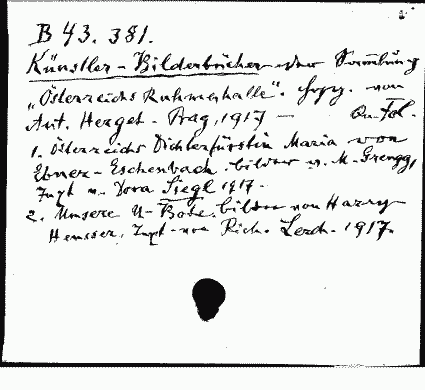 B 43. 381.
Künstler-Bilderbücher der Sammlung
„Österreichs Ruhmeshalle". Hrgg. von
Ant. Herget. Prag, 1917 — Qu-Fol.
1. Österreichs Dichterfürstin Maria von
Ebner-Eschenbach. Bilder v. M. Grengg,
Text v. Dora Siegl 1917.
2. Unsere U-Bote. Bilder von Harry
Heusser. Text von Rich. Lerch. 1917.